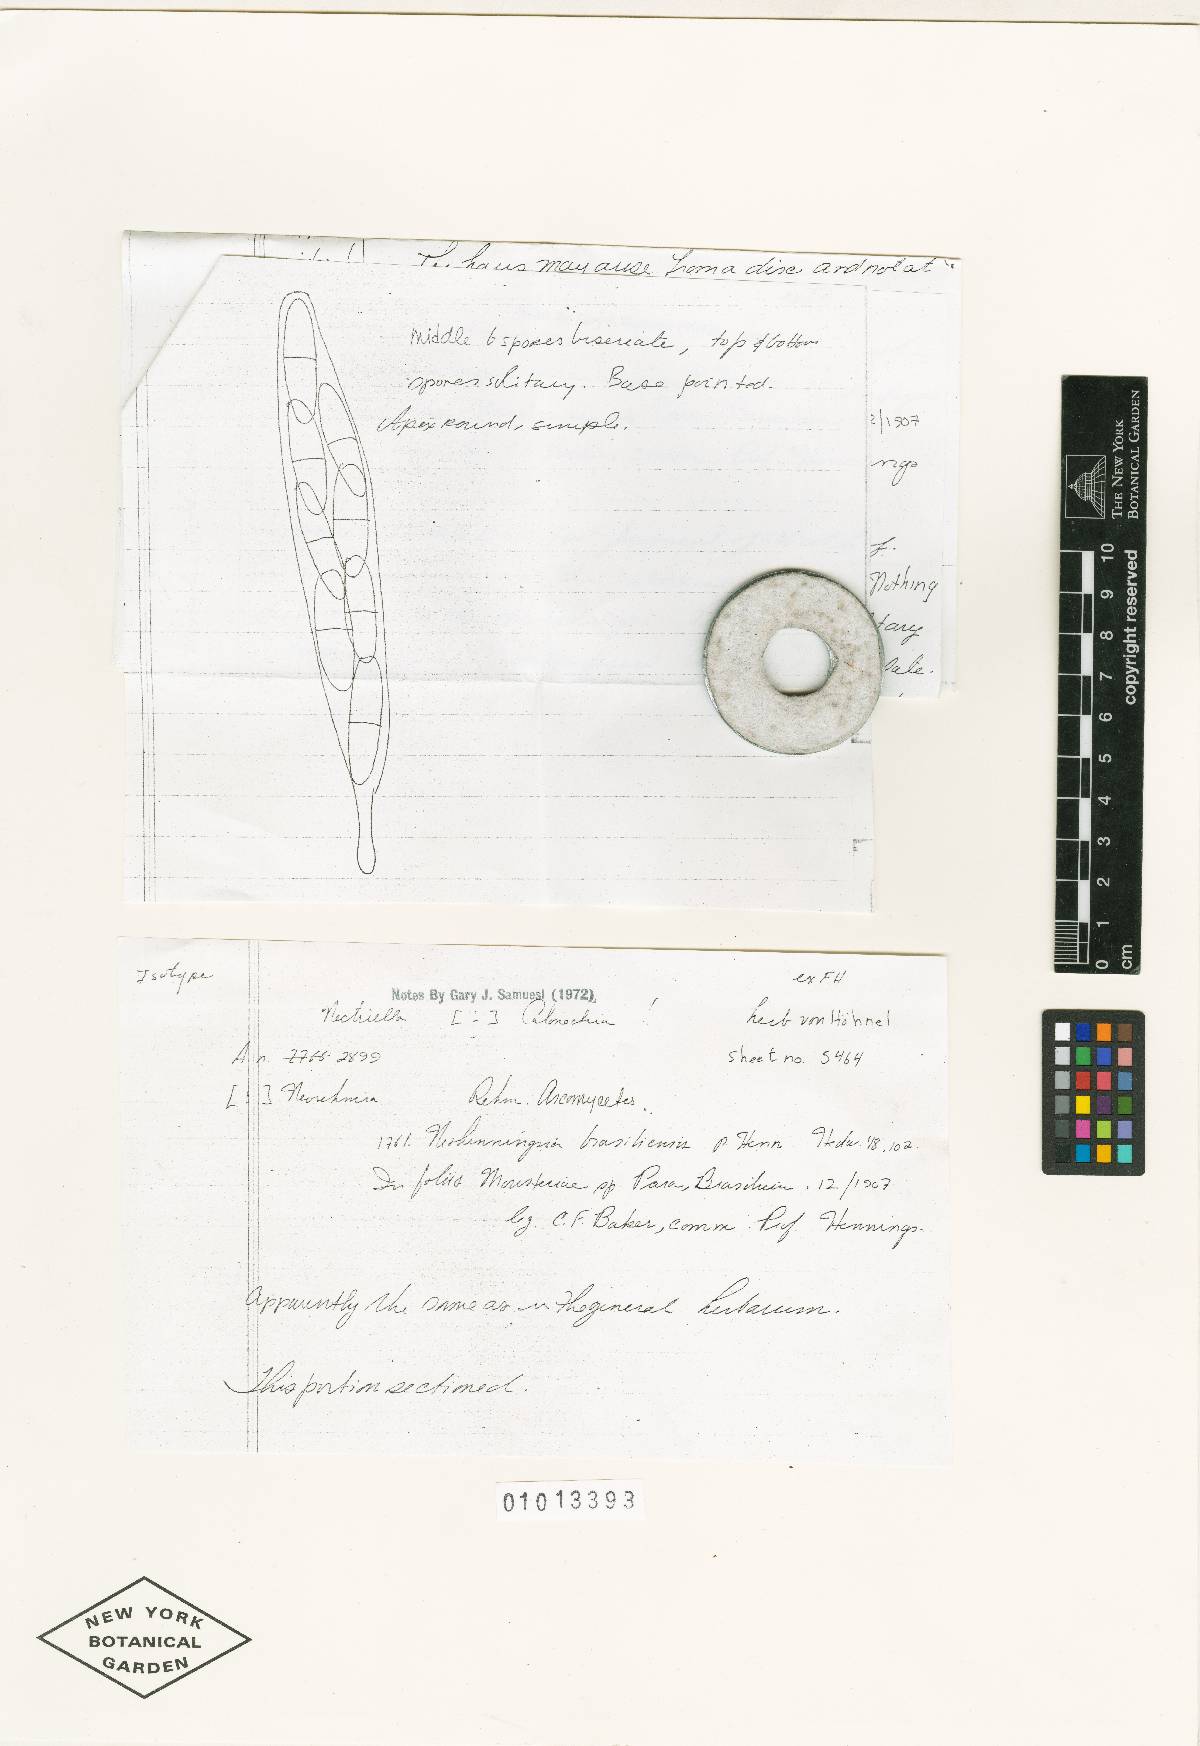 may arise from a disc and not at
middle 6 spores biseriate, top & bottom
spores solitary. Base pointed.
Apex round, simple.
2/1907
ngs
f.
Nothing
tary
Isotype
ex FH
Notes By Gary J. Samuesl (1972)
Nectriella [ = ] Calonectria !
herb von Höhnel
A. n. 2766 2899
sheet no. 5464
[ = ] Neorehmia
Rehm. Ascomycetes.
1761. Neohenningsia brasiliensis P. Henn Hedw. 48.102.
In foliis sp Para, Brasilien. 12/1907
leg. C.F. Baker, comm. Prof Hennings.
Apparently the same as in the general herbarium.
This portion sectioned.
01013393
NEW YORK
BOTANICAL
GARDEN
THE NEW YORK
BOTANICAL GARDEN
copyright reserved
10
9
8
7
6
5
4
3
2
1
0
cm